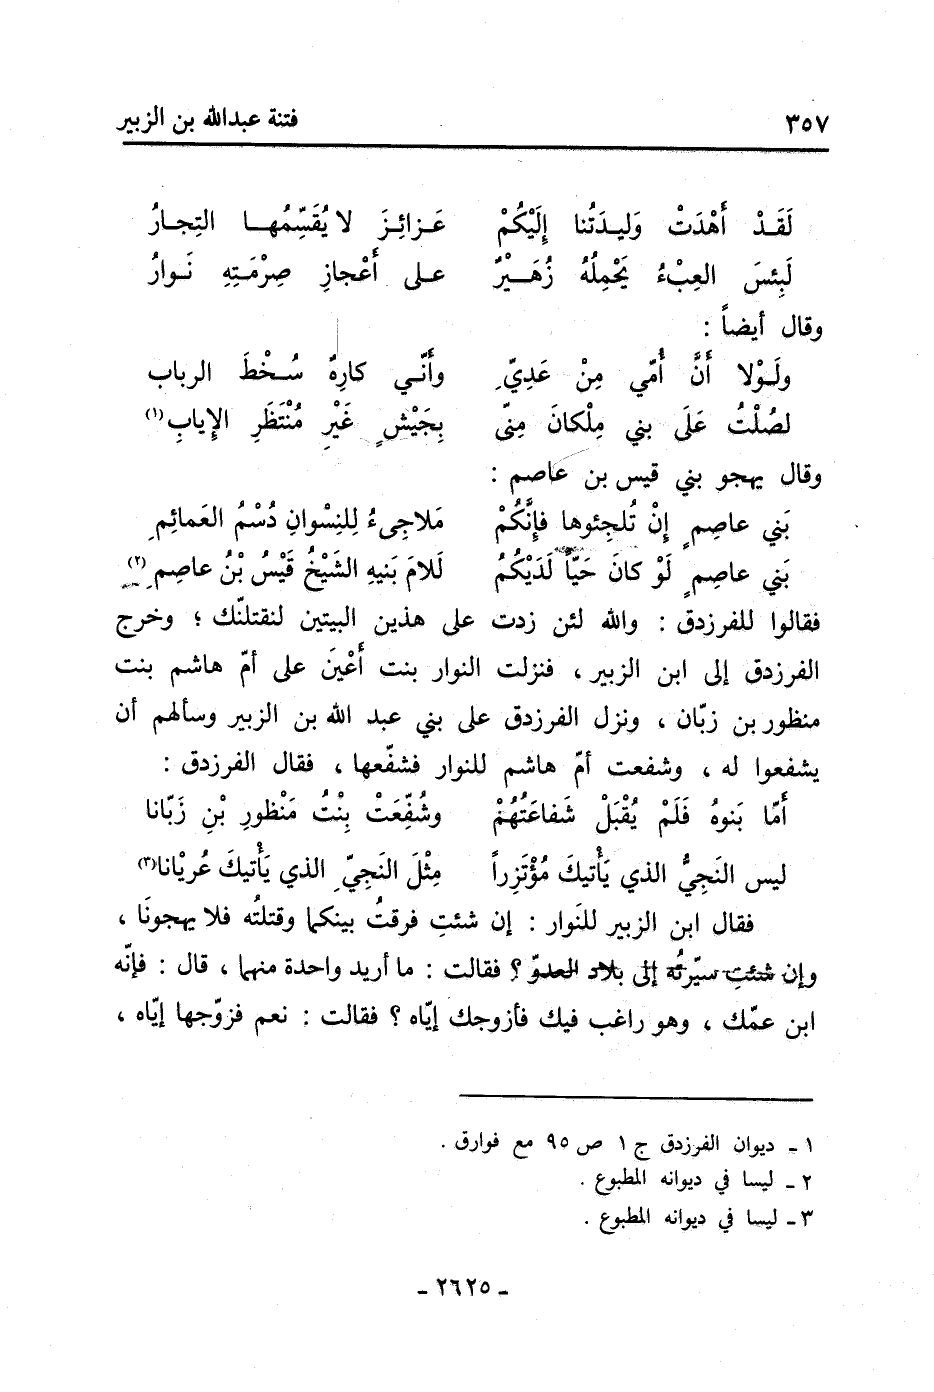 ٣٥٧ فتنة عبدالله بن الزبير
لَقَدْ أَهْدَتْ وَليدَتُنا إِلَيْكُمْ عَزائِزَ لا يُقَسِّمُها التِجارُ
لَبِئسَ العِبْءُ يَحْمِلُهُ زُهَيْرٌ على أَعْجازِ صِرْمَتِهِ نَوارُ
وقال أيضاً :
ولَوْلا أَنَّ أُمّي مِنْ عَدِيّ وأَنّي كارِهٌ سُخْطَ الرباب
لصُلْتُ عَلَى بني مِلْكانَ مِنّى بِجَيْشٍ غَيْرِ مُنْتَظَرِ الإيابِ(١)
وقال يهجو بني قيس بن عاصم :
بَني عاصِمٍ إِنْ تُلجئوها فإنَّكُمْ مَلاجىءُ لِلنِسْوانِ دُسْمُ العَمائِمِ
بَني عاصِمٍ لَوْ كانَ حَيّاً لَدَيْكُمُ لَلامَ بَنيهِ الشَيْخُ قَيْسُ بْنُ عاصِمِ(٢)
فقالوا للفرزدق : والله لئن زدت على هذين البيتين لنقتلنّك ؛ وخرج
الفرزدق إلى ابن الزبير ، فنزلت النوار بنت أَعْيَنَ على أمّ هاشم بنت
منظور بن زبّان ، ونزل الفرزدق على بني عبد الله بن الزبير وسألهم أن
يشفعوا له ، وشفعت أمّ هاشم للنوار فشفّعها ، فقال الفرزدق :
أَمّا بَنوهُ فَلَمْ يُقْبَلْ شَفاعَتُهُمْ وشُفِّعَتْ بِنْتُ مَنْظورِ بْنِ زَبّانا
ليس النَجِيُّ الذي يَأْتيكَ مُؤْتَزِراً مِثْلَ النَجِيّ الذي يَأْتيكَ عُرْيْانا(٣)
فقال ابن الزبير للنَوار : إن شئتِ فرقتُ بينكما وقتلتُه فلا يهجونَا ،
وإن شئتِ سيّرتُه إلى بلاد العدوّ ؟ فقالت : ما أريد واحدة منهما ، قال : فإنّه
ابن عمّك ، وهو راغب فيك فأزوجك إيّاه ؟ فقالت : نعم فزوّجها إيّاه ،
١ ـ ديوان الفرزدق ج ١ ص ٩٥ مع فوارق .
٢ ـ ليسا في ديوانه المطبوع .
٣ ـ ليسا في ديوانه المطبوع .
ـ ٢٦٢٥ ـ